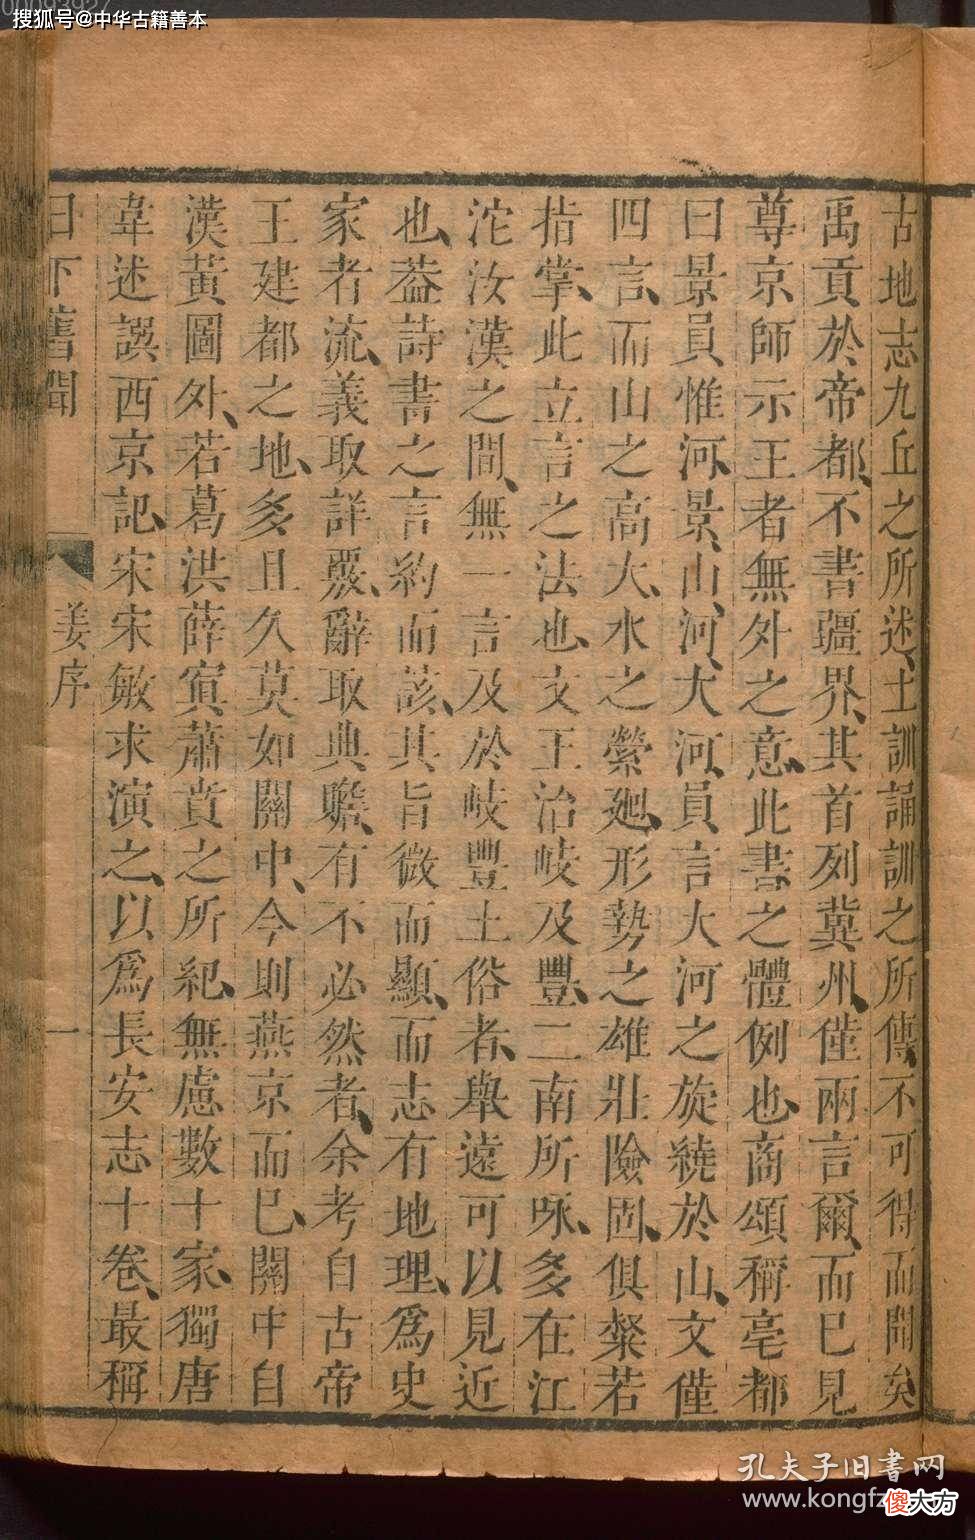 搜狐号@中华古籍善本
古地志九丘之所述、土訓誦訓之所傳、不可得而聞矣
禹貢於帝都、不書疆界、其首列冀州、僅兩言爾、而已見
尊京師示王者無外之意、此書之體例也、商頌稱亳都
曰景員惟河、景、山、河、大河、員言大河之旋繞於山、文僅
四言、而山之高大、水之縈廻、形勢之雄壯險固、俱粲若
指掌、此立言之法也、文王治岐及豐、二南所咏、多在江
沱汝漢之間、無一言及於岐豐土俗者、舉遠可以見近
也、葢詩書之言約而該、其旨微而顯、而志有地理、爲史
家者流、義取詳覈、辭取典贍、有不必然者、余考自古帝
王建都之地、多且久莫如關中、今則燕京而已、關中自
漢黃圖外、若葛洪薛寘蕭賁之所紀、無慮數十家、獨唐
韋述譔西京記、宋宋敏求演之、以爲長安志十卷、最稱
日下舊聞
姜序
一
孔夫子旧书网
www.kongfz
傻大方